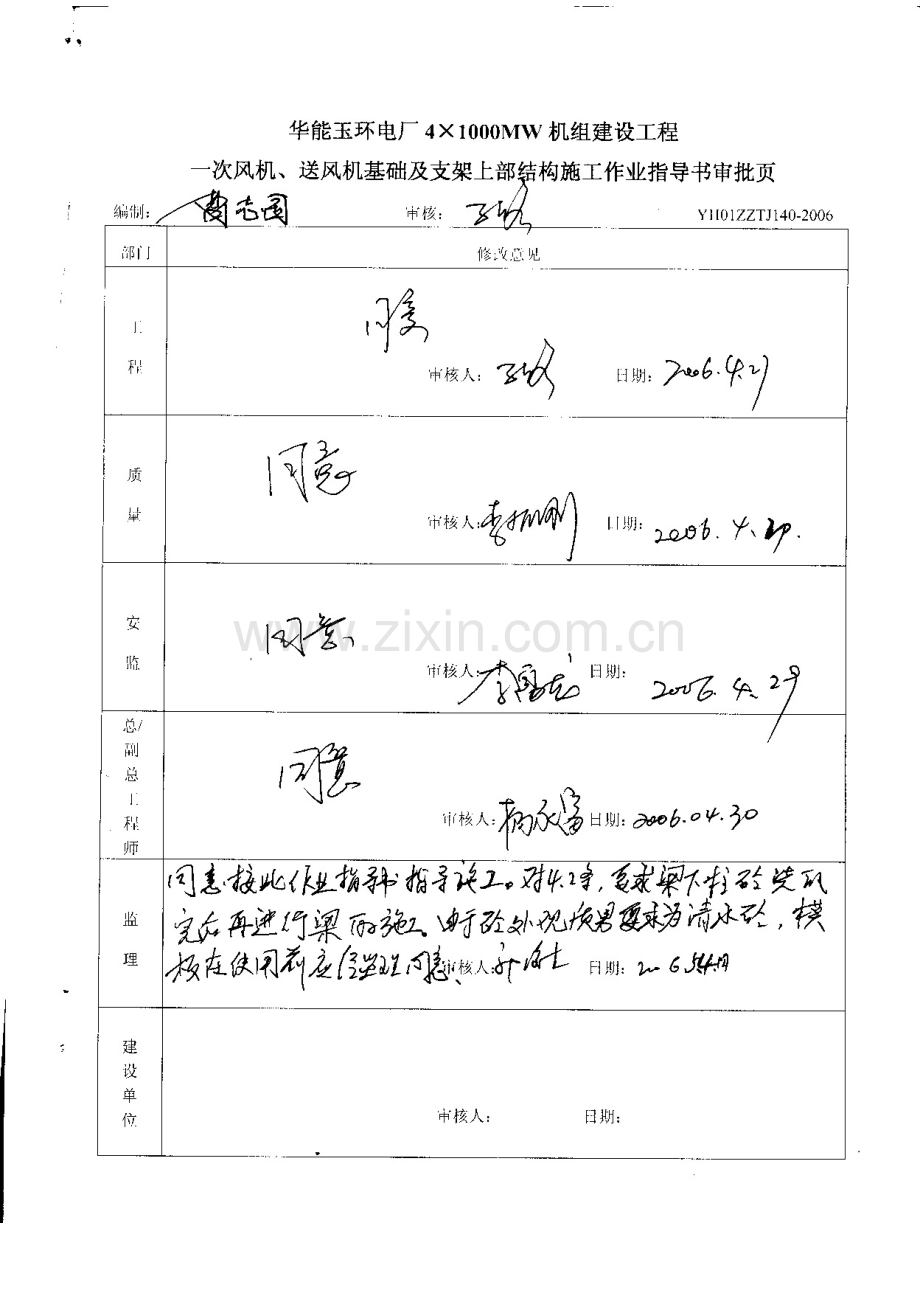 华能玉环电厂 4×1000MW 机组建设工程
一次风机、送风机基础及支架上部结构施工作业指导书审批页
编制： 审核： YH01ZZTJ140-2006
部门 修改意见
工程 同意
审核人： 日期：2006.4.27
质量 同意
审核人：李 刚 日期：2006.4.
安监 同意
审核人：李 日期：2006.4.29
总/副总工程师 同意
审核人：杨永富 日期：2006.04.30
监理 同意按此作业指导书指导施工。对4.2条，要求梁下柱砼浇
完后再进行梁的施工。由于砼外观质量要求为清水砼，模
板在使用前应经监理同意、审核人： 日期：2006
建设单位
审核人： 日期：
www.zixin.com.cn